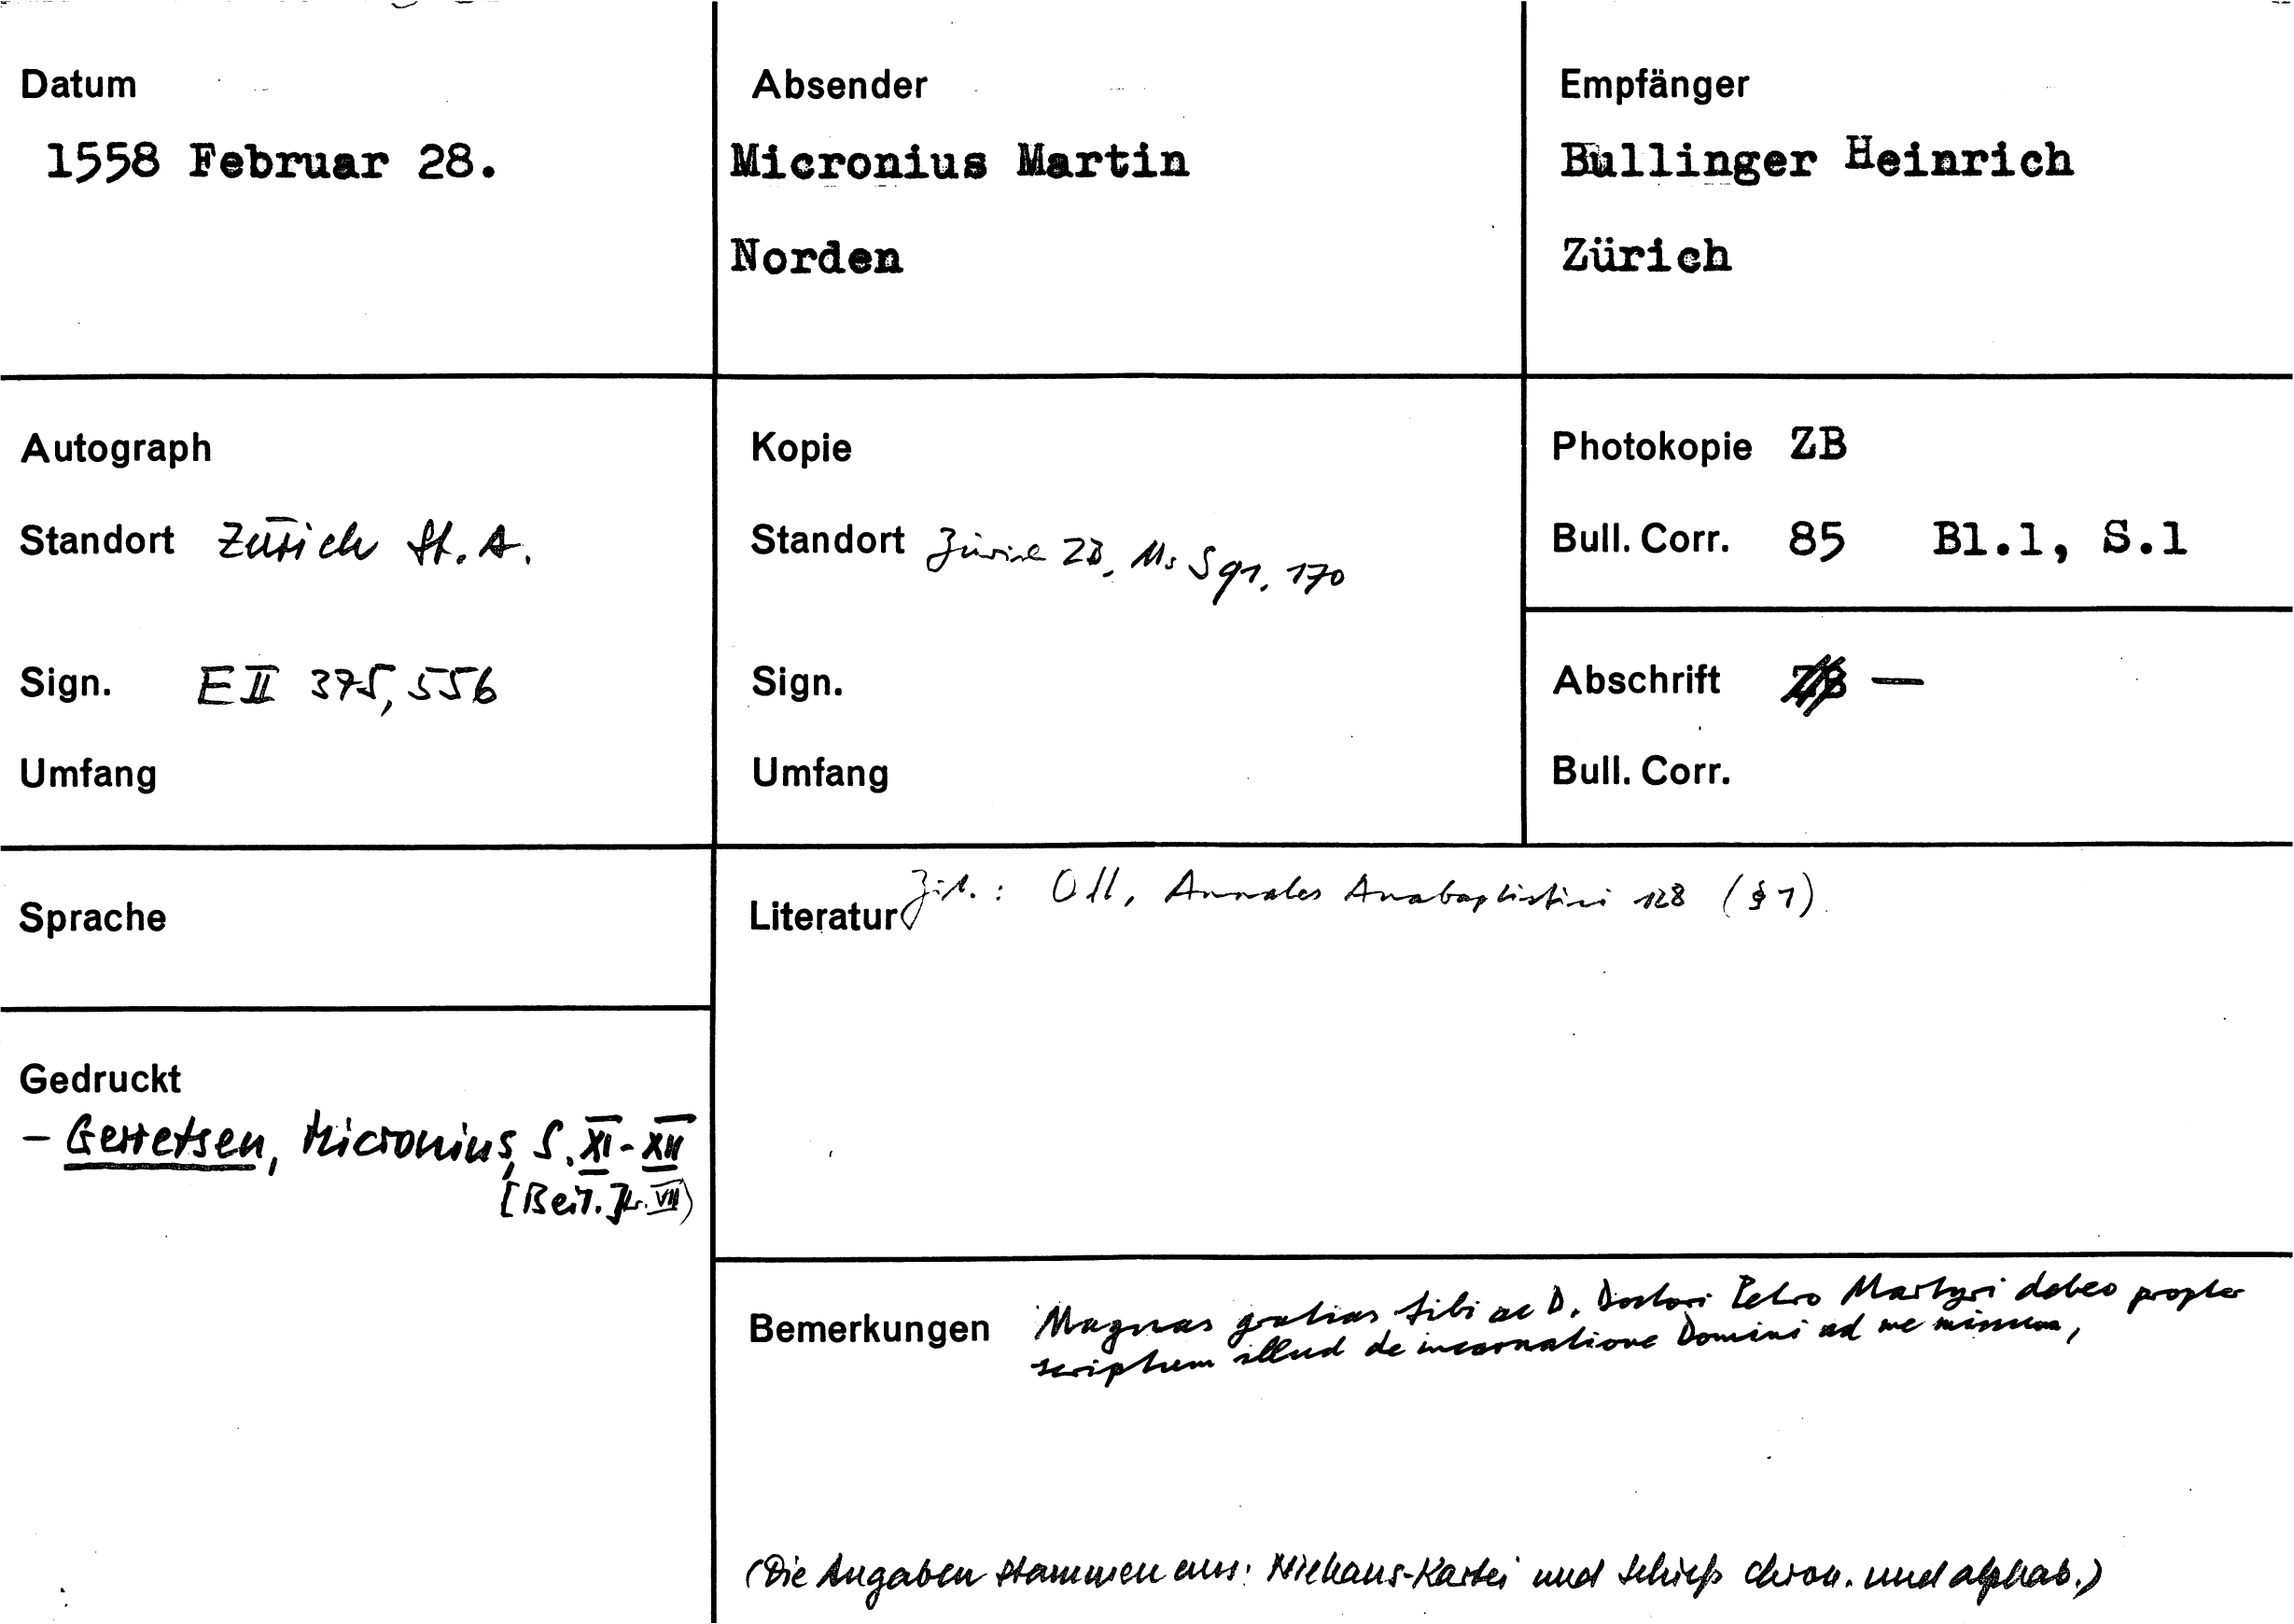 Datum
1558 Februar 28.
Absender
Micronius Martin
Norden
Empfänger
Bullinger Heinrich
Zürich
Autograph
Standort Zürich St. A.
Sign. E II 375, 556
Umfang
Kopie
Standort Zürich ZB, Ms S 91, 170
Sign.
Umfang
Photokopie ZB
Bull. Corr. 85 Bl.1, S.1
Abschrift —
Bull. Corr.
Sprache
Literatur Zit.: Ott, Annales Anabaptistici 128 (§ 1)
Gedruckt
– Gerretsen, Micronius, S. XI - XII
[Beil. VIII)
Bemerkungen Magnas gratias tibi ac D. Doctori Petro Martyri debeo propter
scriptum illud de incarnatione Domini ad me missum,
(Die Angaben stammen aus: Niehaus-Kartei und Schieß chron. und alphab.)